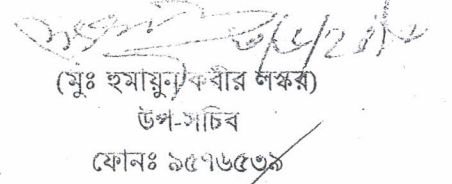 (মুঃ হুমায়ুন কবীর লস্কর)
উপ-সচিব
ফোনঃ ৯৫৭৬৫৩৯